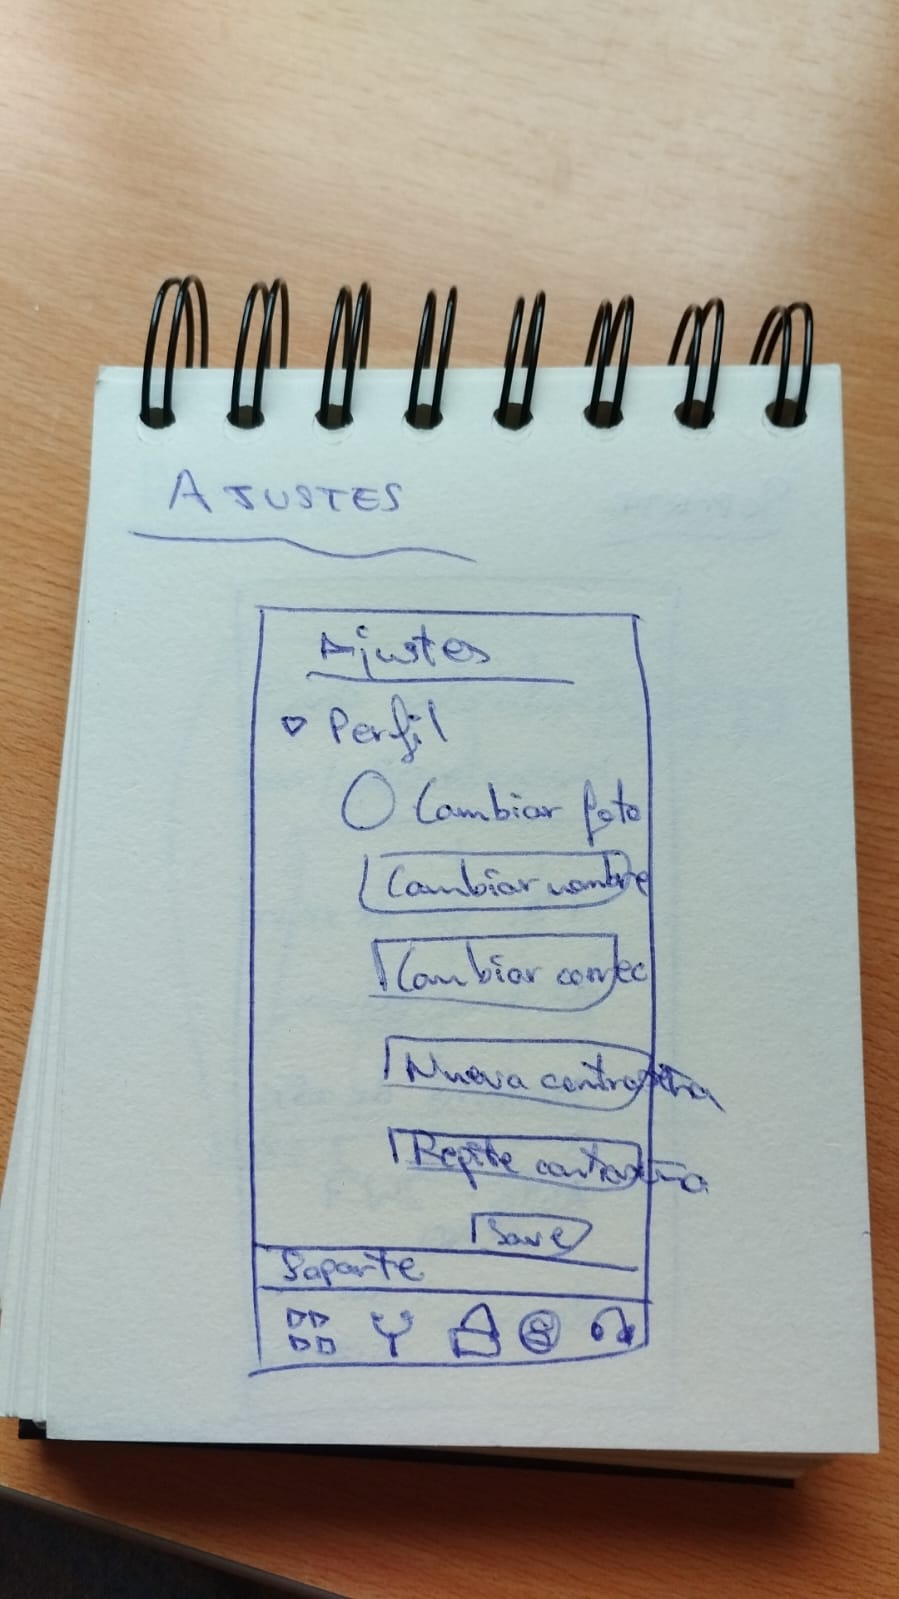 AJUSTES
Ajustes
Perfil
Cambiar foto
Cambiar nombre
Cambiar correo
Nueva contraseña
Repite contraseña
Save
Soporte